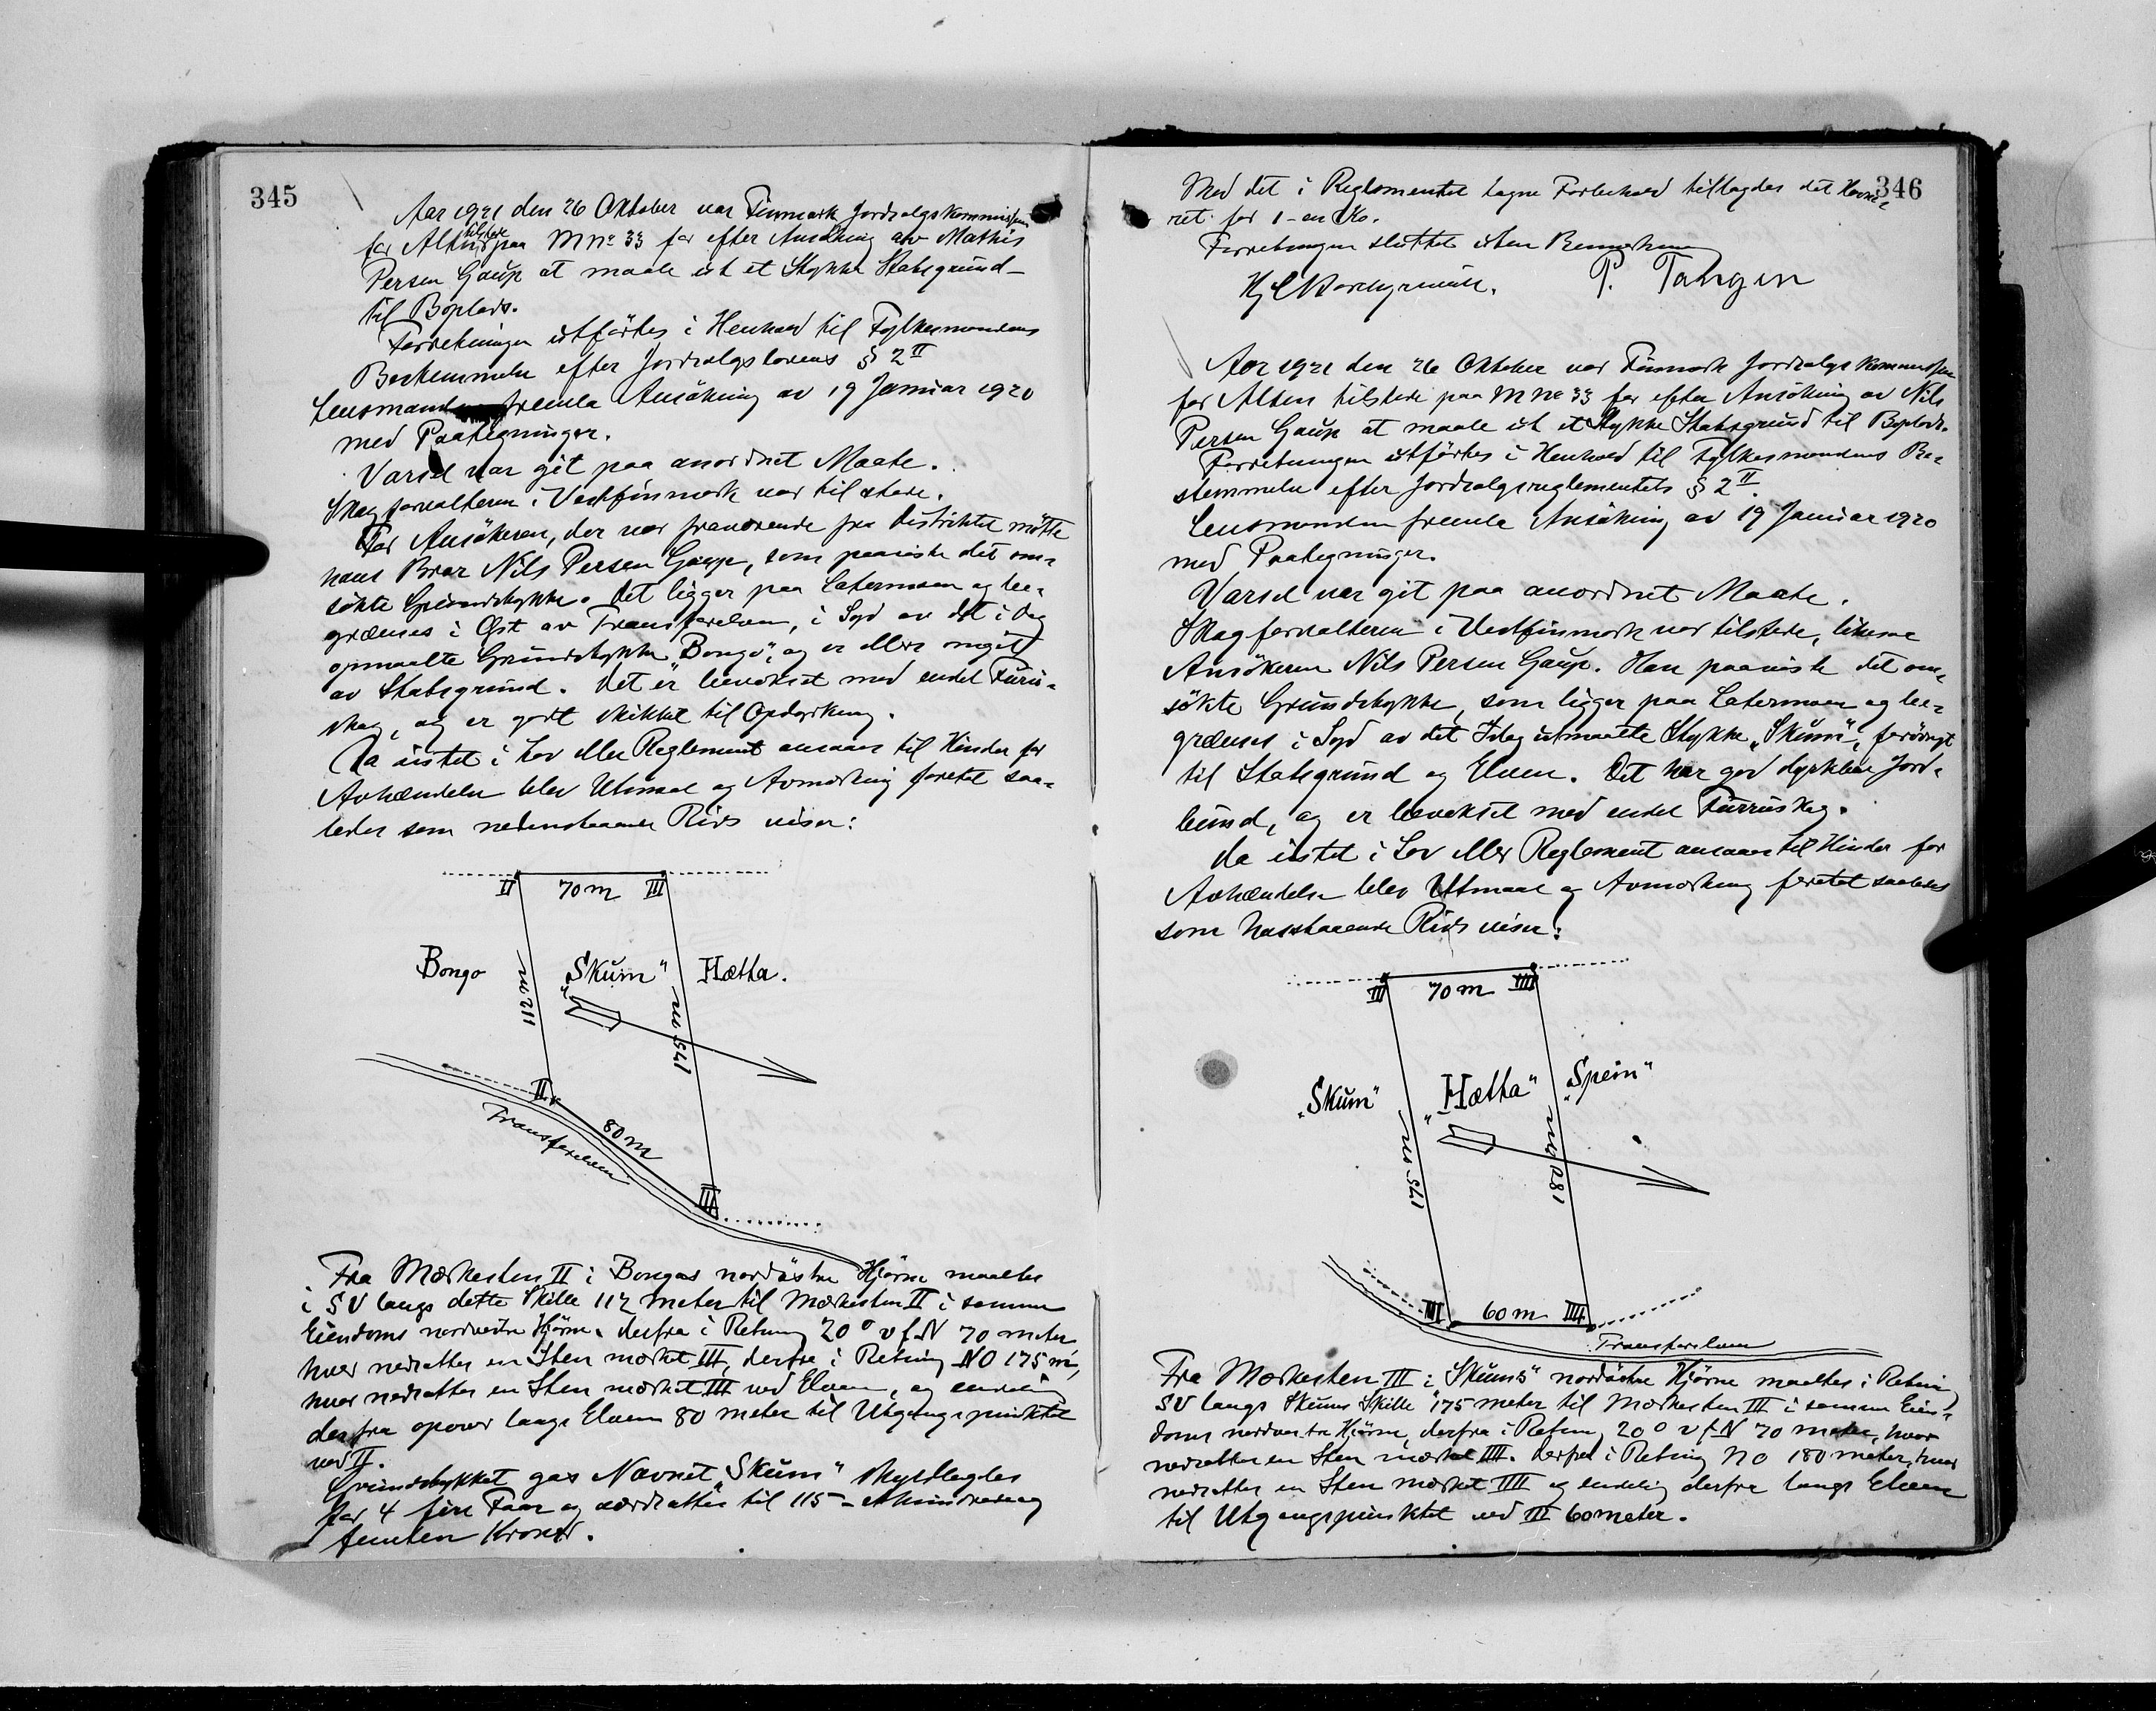 345
Aar 1921 den 26 Oktober var Finmark Jordsalgskommission
for Alten tilstede paa M no 33 for efter Ansökning av Mathis
Persen Gaup at maale ut et Stykke Statsgrund
til Boplads.
Forretningen utförtes i Henhold til Fylkesmandens
Bestemmelse efter Jordsalgslovens § 2 II
Lensmanden fremla Ansökning av 19 Januar 1920
med Paategninger.
Varsel var git paa anordnet Maate.
Skogforvalteren i Vestfinmark var tilstede.
For Ansökeren, der var fraværende fra Distriktet mötte
hans Bror Nils Persen Gaup, som paaviste det om-
sökte Grundstykke. Det ligger paa Latermoen og be-
grænses i Öst av Transfarelven, i Syd av det i Dag
opmaalte Grundstykke "Bongo", og er ellers omgit
av Statsgrund. Det er bevokset med endel Furu-
skog, og er godt skikket til Opdyrkning.
Da intet i Lov eller Reglement ansaaes til Hinder for
Avhændelse blev Utmaal og Avmerkning foretat saa-
ledes som nedenstaaende Rids viser:
II 70 m III
Bongo 112 m "Skum" 175 m Hætta.
II 80 m
Transfarelven
III
Fra Merkesten II i Bongos nordöstre Hjörne maaltes
i SV langs dette Skille 112 meter til Merkesten II i samme
Eiendoms nordvestre Hjörne, derfra i Retning 20° v f N 70 meter
hvor nedsattes en Sten merket III, derfra i Retning NO 175 m,
hvor nedsattes en Sten merket III ved Elven, og endelig
derfra opover langs Elven 80 meter til Utgangspunktet
ved II.
Grundstykket gas Navnet "Skum" skyldlagdes
for 4 fire Faar og værdsattes til 115 - ethundredeog
femten Kroner.
346
Med det i Reglementet tagne Forbehold tillagdes det Havne-
ret for 1 - en Ko.
Forretningen sluttet uten Bemerkning
P. Tangen
Aar 1921 den 26 Oktober var Finmark Jordsalgskommission
for Alten tilstede paa M no 33 for efter Ansökning av Nils
Persen Gaup at maale ut et Stykke Statsgrund til Boplads.
Forretningen utförtes i Henhold til Fylkesmandens Be-
stemmelse efter Jordsalgsreglementets § 2 II.
Lensmanden fremla Ansökning av 19 Januar 1920
med Paategninger.
Varsel var git paa anordnet Maate.
Skogforvalteren i Vestfinmark var tilstede, likesaa
Ansökeren Nils Persen Gaup. Han paaviste det om-
sökte Grundstykke, som ligger paa Latermoen og be-
grænses i Syd av det Idag utmaalte Stykke "Skum", forövrigt
til Statsgrund og Elven. Det har god dyrkbar Jord-
bund, og er bevokset med endel Furruskog.
Da intet i Lov eller Reglement ansaaes til Hinder for
Avhændelse blev Utmaal og Avmerkning foretat saaledes
som hosstaaende Rids viser:
III 70 m IIII
"Skum" 175 m "Hætta" 180 m "Spein"
III 60 m IIII
Transfarelven
Fra Merkesten III i "Skums" nordöstre Hjörne maaltes i Retning
SV langs Skums Skille 175 meter til Merkesten III i samme Eien-
doms nordvestre Hjörne, derfra i Retning 20° v f N 70 meter, hvor
nedsattes en Sten merket IIII. Derfra i Retning NO 180 meter, hvor
nedsattes en Sten merket IIII og endelig derfra langs Elven
til Utgangspunktet ved III 60 meter.